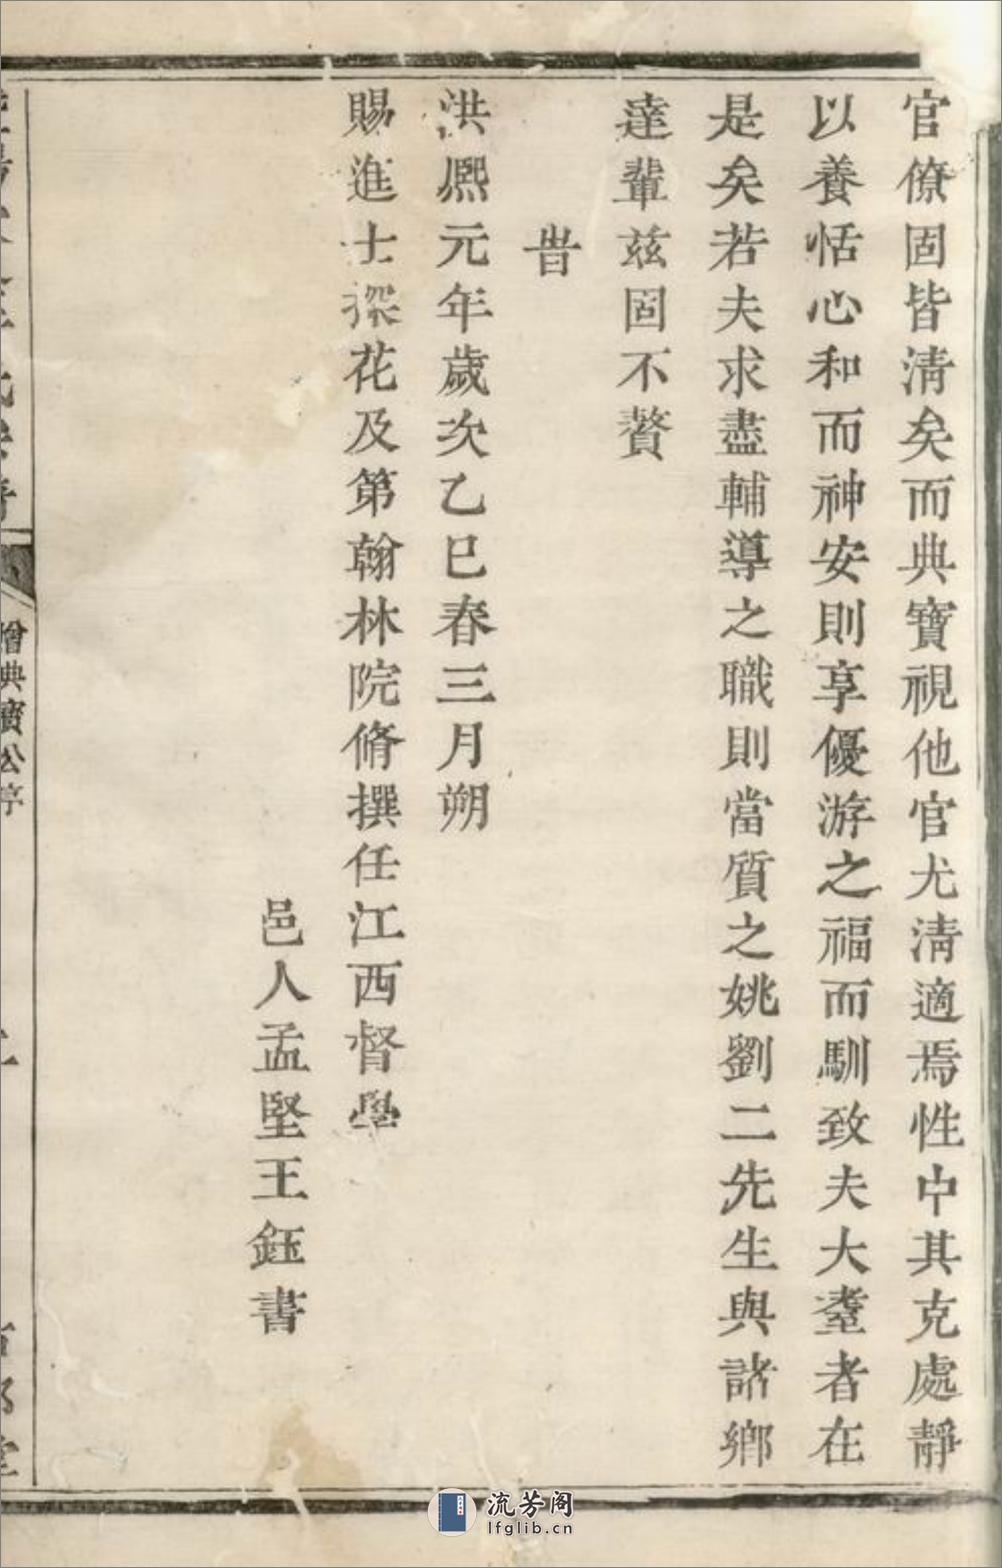 官僚固皆淸矣而典寶視他官尤淸適焉性中其克處靜
以養恬心和而神安則享優游之福而馴致夫大耋者在
是矣若夫求盡輔導之職則當質之姚劉二先生與諸鄉
達輩茲固不贅
旹
洪熈元年歲次乙巳春三月朔
賜進士探花及第翰林院脩撰任江西督學
邑人孟堅王鈺書
贈典寶公序
流芳阁
lfglib.cn